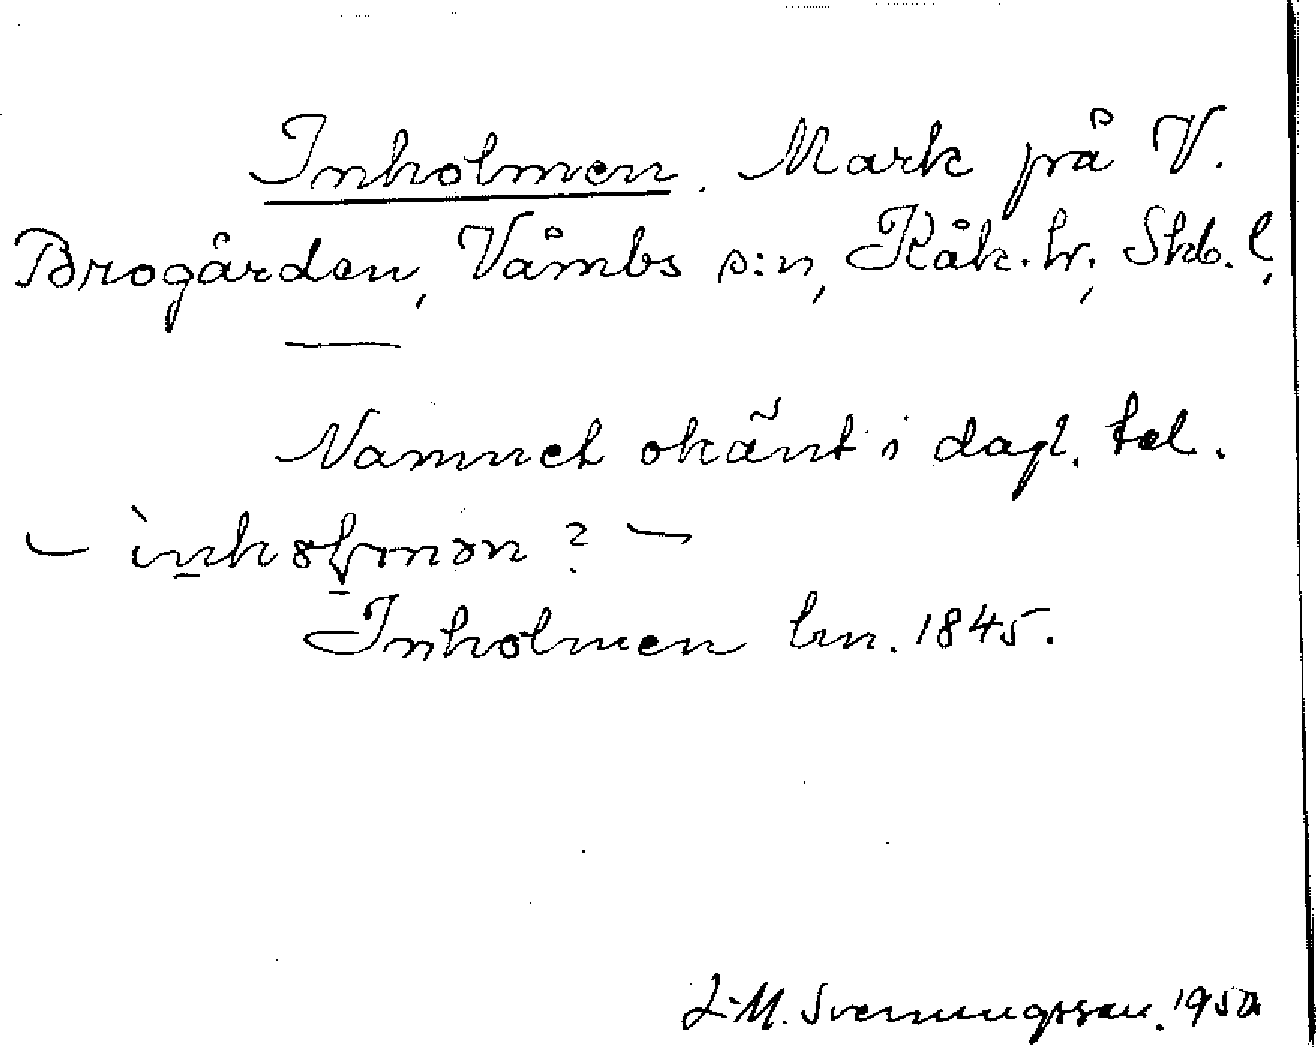 Inholmen. Mark på V.
Brogården, Våmbs s:n, Kåk. hr; Skb. l,
Namnet okänt i dagl. tal.
Inholmen hm. 1845.
L-M. Svenungsson. 1950